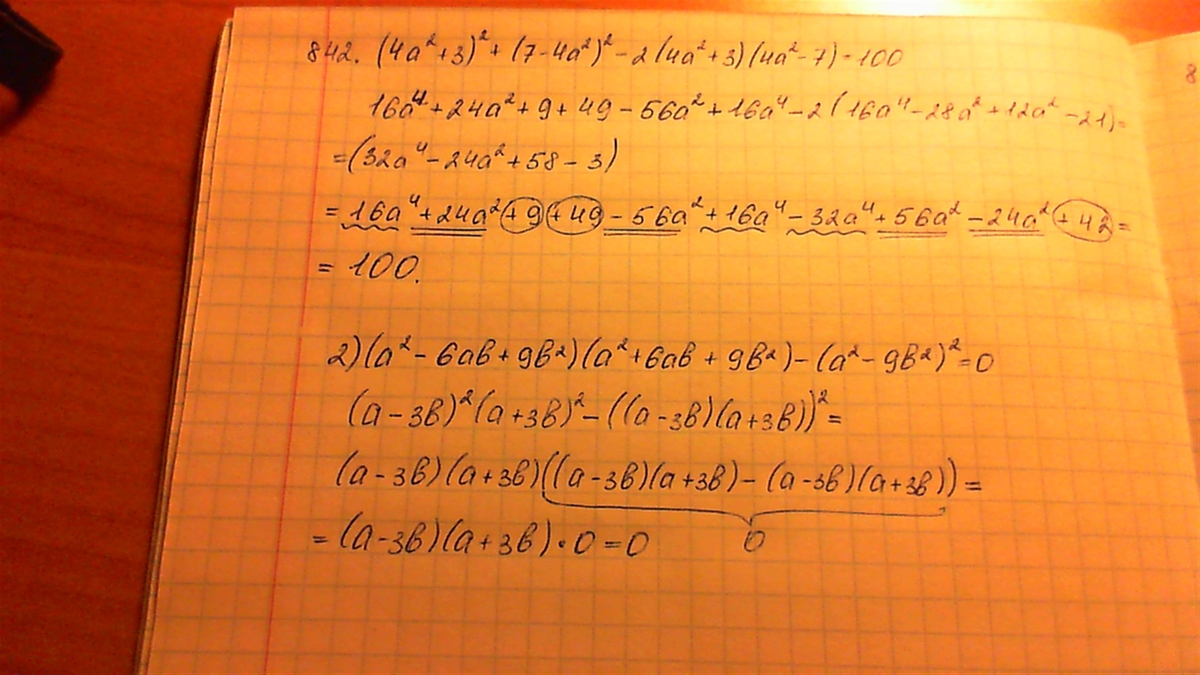 842. (4a² + 3)² + (7 - 4a²)² - 2(4a² + 3)(4a² - 7) = 100
16a⁴ + 24a² + 9 + 49 - 56a² + 16a⁴ - 2(16a⁴ - 28a² + 12a² - 21) =
= (32a⁴ - 24a² + 58 - 3)
= 16a⁴ + 24a² + 9 + 49 - 56a² + 16a⁴ - 32a⁴ + 56a² - 24a² + 42 =
= 100.
2) (a² - 6ab + 9b²)(a² + 6ab + 9b²) - (a² - 9b²)² = 0
(a - 3b)²(a + 3b)² - ((a - 3b)(a + 3b))² =
(a - 3b)(a + 3b)((a - 3b)(a + 3b) - (a - 3b)(a + 3b)) =
= (a - 3b)(a + 3b) • 0 = 0
0
8